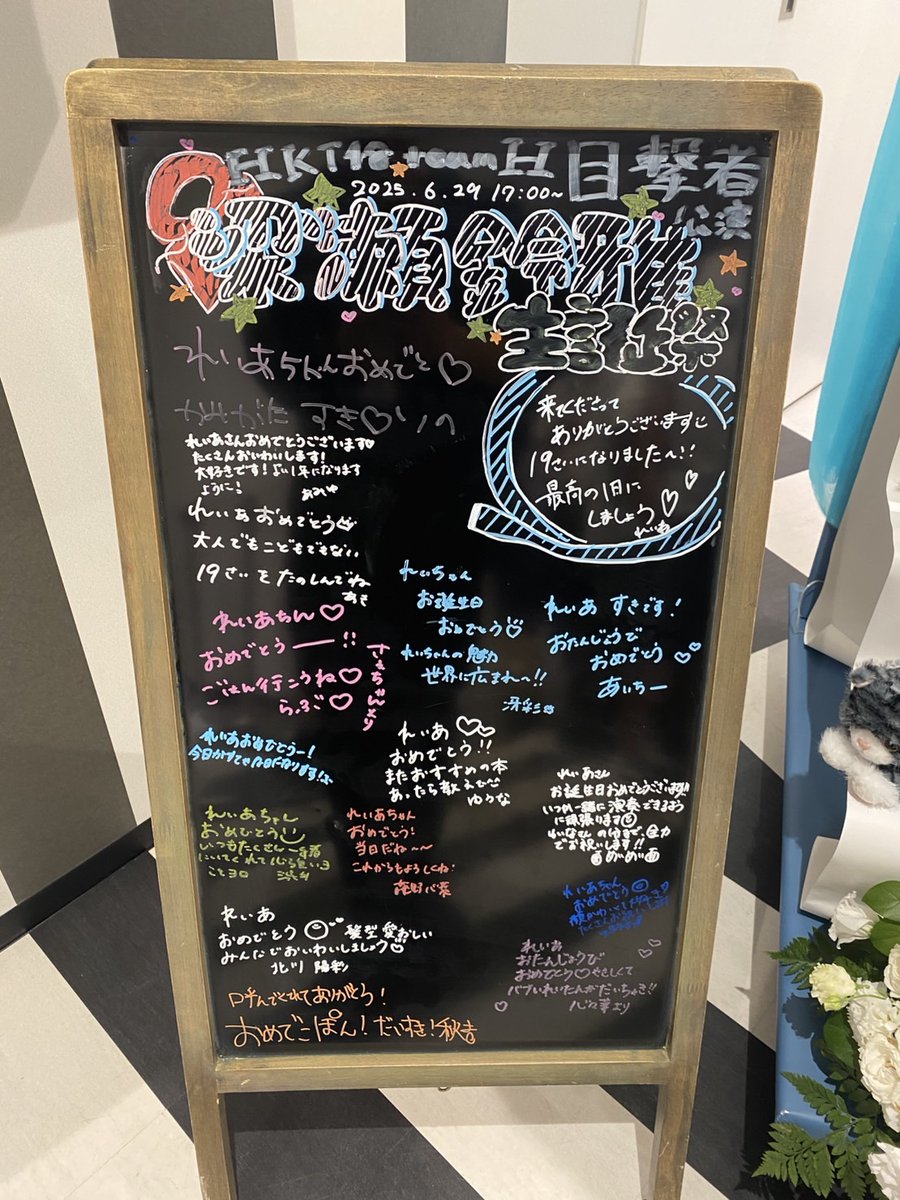 HKT48 team H 目撃者
公演
2025.6.29 17:00~
渋井瀬鈴雅
生誕祭
来てくださって
ありがとうございます
19さいになりました〜!!
最高の1日に
しましょう♡♡
れいあ
れいあちゃんおめでと♡
かみがた すき♡りの
れいあさんおめでとうございます♡
たくさんおいわいします!
大好きです!よい1年になります
ように!
あみゆ
れいあおめでとう
大人でもこどもでもない
19さいをたのしんでね
あき
れいあちん♡
おめでとうー!!
ごはん行こうね♡
らぶ♡
さえちゃんより
れいちゃん
お誕生日
おめでとう
れいちゃんの魅力
世界に広まれ〜!!
冴彩
れいあ すきです!
おたんじょうび
おめでとう
あいちー
れいあおめでとうー!
れいあ♡♡
おめでとう!!
またおすすめの本
あったら教えて
ゆうな
れいあさん
お誕生日おめでとうございます!!
いつか一緒に演奏できるように
に頑張ります
でお祝いします!!
めいめい
れいあちゃん
おめでとう
いつもたくさん一緒
にいてくれて心強いヨ
れいあちゃん
おめでとう!
当日だね〜〜
これからもよろしくね!
れいあちゃん
おめでとう
れいあ
おめでとう 髪型愛おしい
みんなでおいわいしましょう
北川 陽彩
れいあ
おたんじょうび
おめでとう♡やさしくて
バブいれいたんがだいちゅき!!
より
呼んでくれてありがとう!
おめでこぽん!だいすき!秋吉